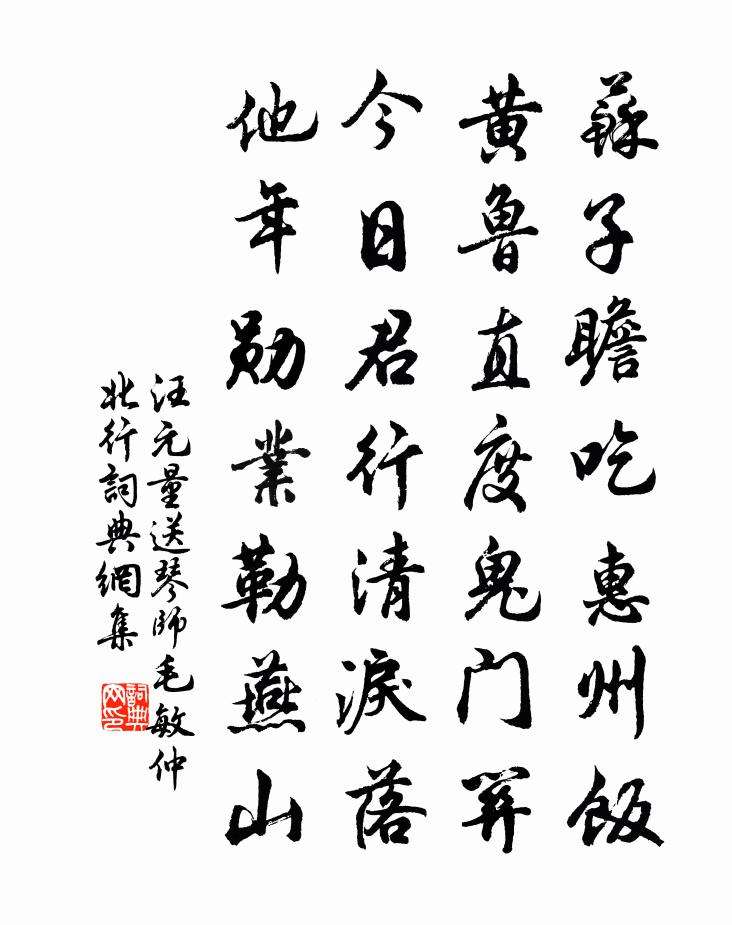 蘇子瞻吃惠州飯
黃魯直度鬼門關
今日君行清淚落
他年勛業勒燕山
汪元量送琴師毛敏仲
北行詞典網集
詞典网印